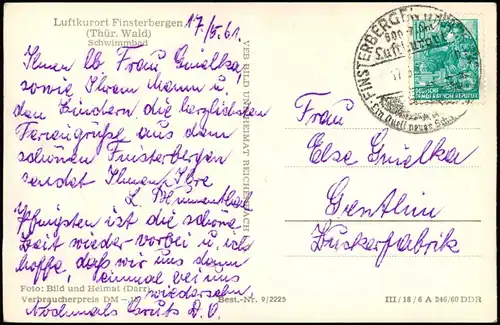 Luftkurort Finsterbergen
(Thür. Wald)
Schwimmbad
17/5.61.
Ihnen lb Frau Gnielka,
sowie Ihrem Mann u.
den Kindern, die herzlichsten
Feriengrüße aus dem
schönen Finsterbergen
sendet Ihnen Ihre
L. Blumenthal
Pfingsten ist die schöne
Zeit wieder vorbei u. ich
hoffe, daß wir uns dann
einmal bei uns
wiedersehn,
Nochmals Gruß D. O.
Foto: Bild und Heimat (Darr)
Verbraucherpreis DM
Best.-Nr. 9/2225
VEB BILD UND HEIMAT REICHENBACH
FINSTERBERGEN
Luftkurort
17
DEUTSCHE
DEMOKRATISCHE REPUBLIK
5
Frau
Else Gnielka
Genthin
Zuckerfabrik
III/18/6 A 246/60 DDR